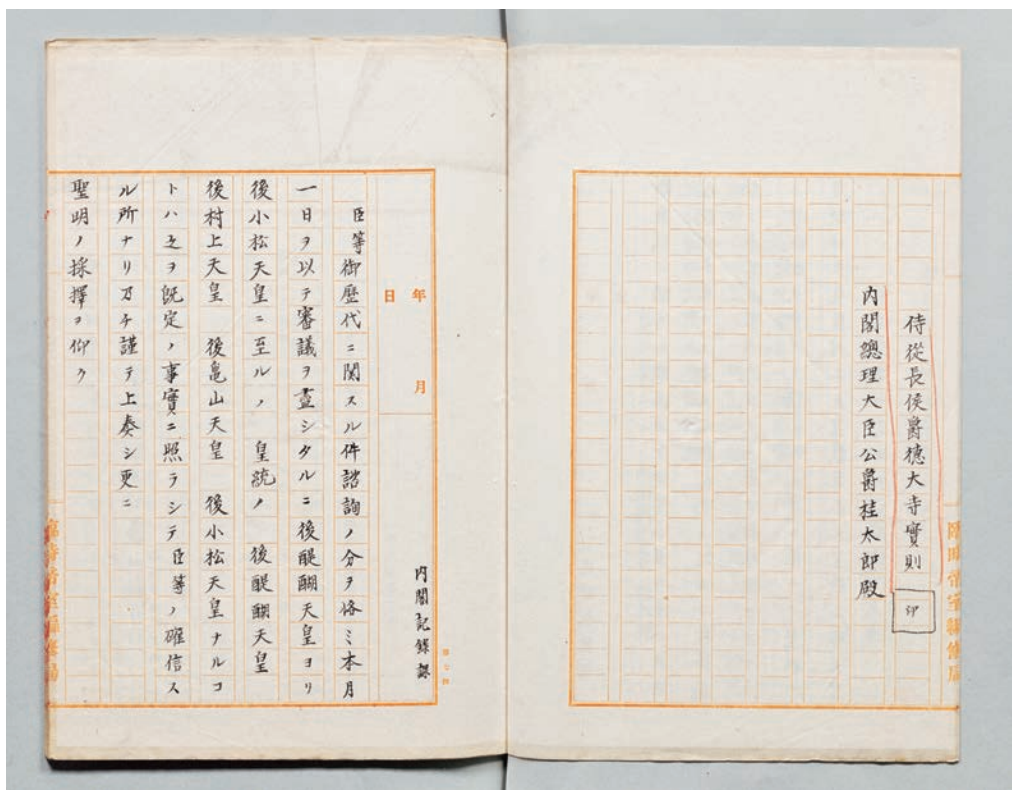 侍從長侯爵德大寺實則
印
内閣總理大臣公爵桂太郎殿
臨時帝室編修局
年　月
日
内閣記録課
臣等御歴代ニ関スル件諮詢ノ分ヲ恪ミ本月
一日ヲ以テ審議ヲ盡シタルニ後醍醐天皇ヨリ
後小松天皇ニ至ルノ　皇統ノ　後醍醐天皇
後村上天皇　後亀山天皇　後小松天皇ナルコ
トハ之ヲ既定ノ事實ニ照ラシテ臣等ノ確信ス
ル所ナリ乃チ謹テ上奏シ更ニ
聖明ノ採擇ヲ仰ク
臨時帝室編修局